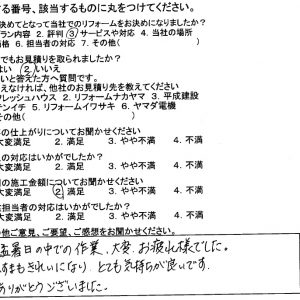 る番号、該当するものに丸をつけてください。
決めてとなって当社でのリフォームをお決めになりましたか?
ラン内容 2. 評判 ③サービスや対応 4. 当社の場所
価格 6. 担当者の対応 7. その他(
でもお見積りを取られましたか?
はい ②いいえ
いと答えた方へ質問です。
えなければ、他社のお見積り先を教えてください
フレッシュハウス 2. リフォームナカヤマ 3. 平成建設
テンイチ 5. リフォームイワサキ 6. ヤマダ電機
その他( )
の仕上がりについてお聞かせください
大変満足 2. 満足 3. やや不満 4. 不満
の対応はいかがでしたか?
大変満足 2. 満足 3. やや不満 4. 不満
の施工金額についてお聞かせください
大変満足 ②満足 3. やや不満 4. 不満
担当者の対応はいかがでしたか?
大変満足 2. 満足 3. やや不満 4. 不満
他ご意見、ご要望、ご感想をお聞かせください。
猛暑日の中での作業、大変お疲れ様でした。
もきれいになり とても気持ちが良いです。
ありがとうございました。